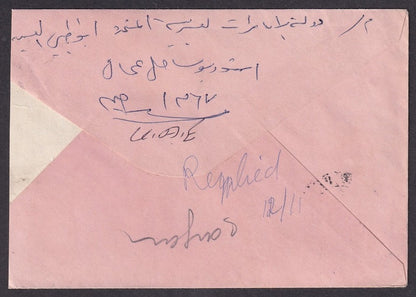 م/ دولة الامارات العربية المتحدة ابوظبي العين
استوديو ساحل عمان
ص ب ١٣٦٧
U.A.E
Repplied
12/11